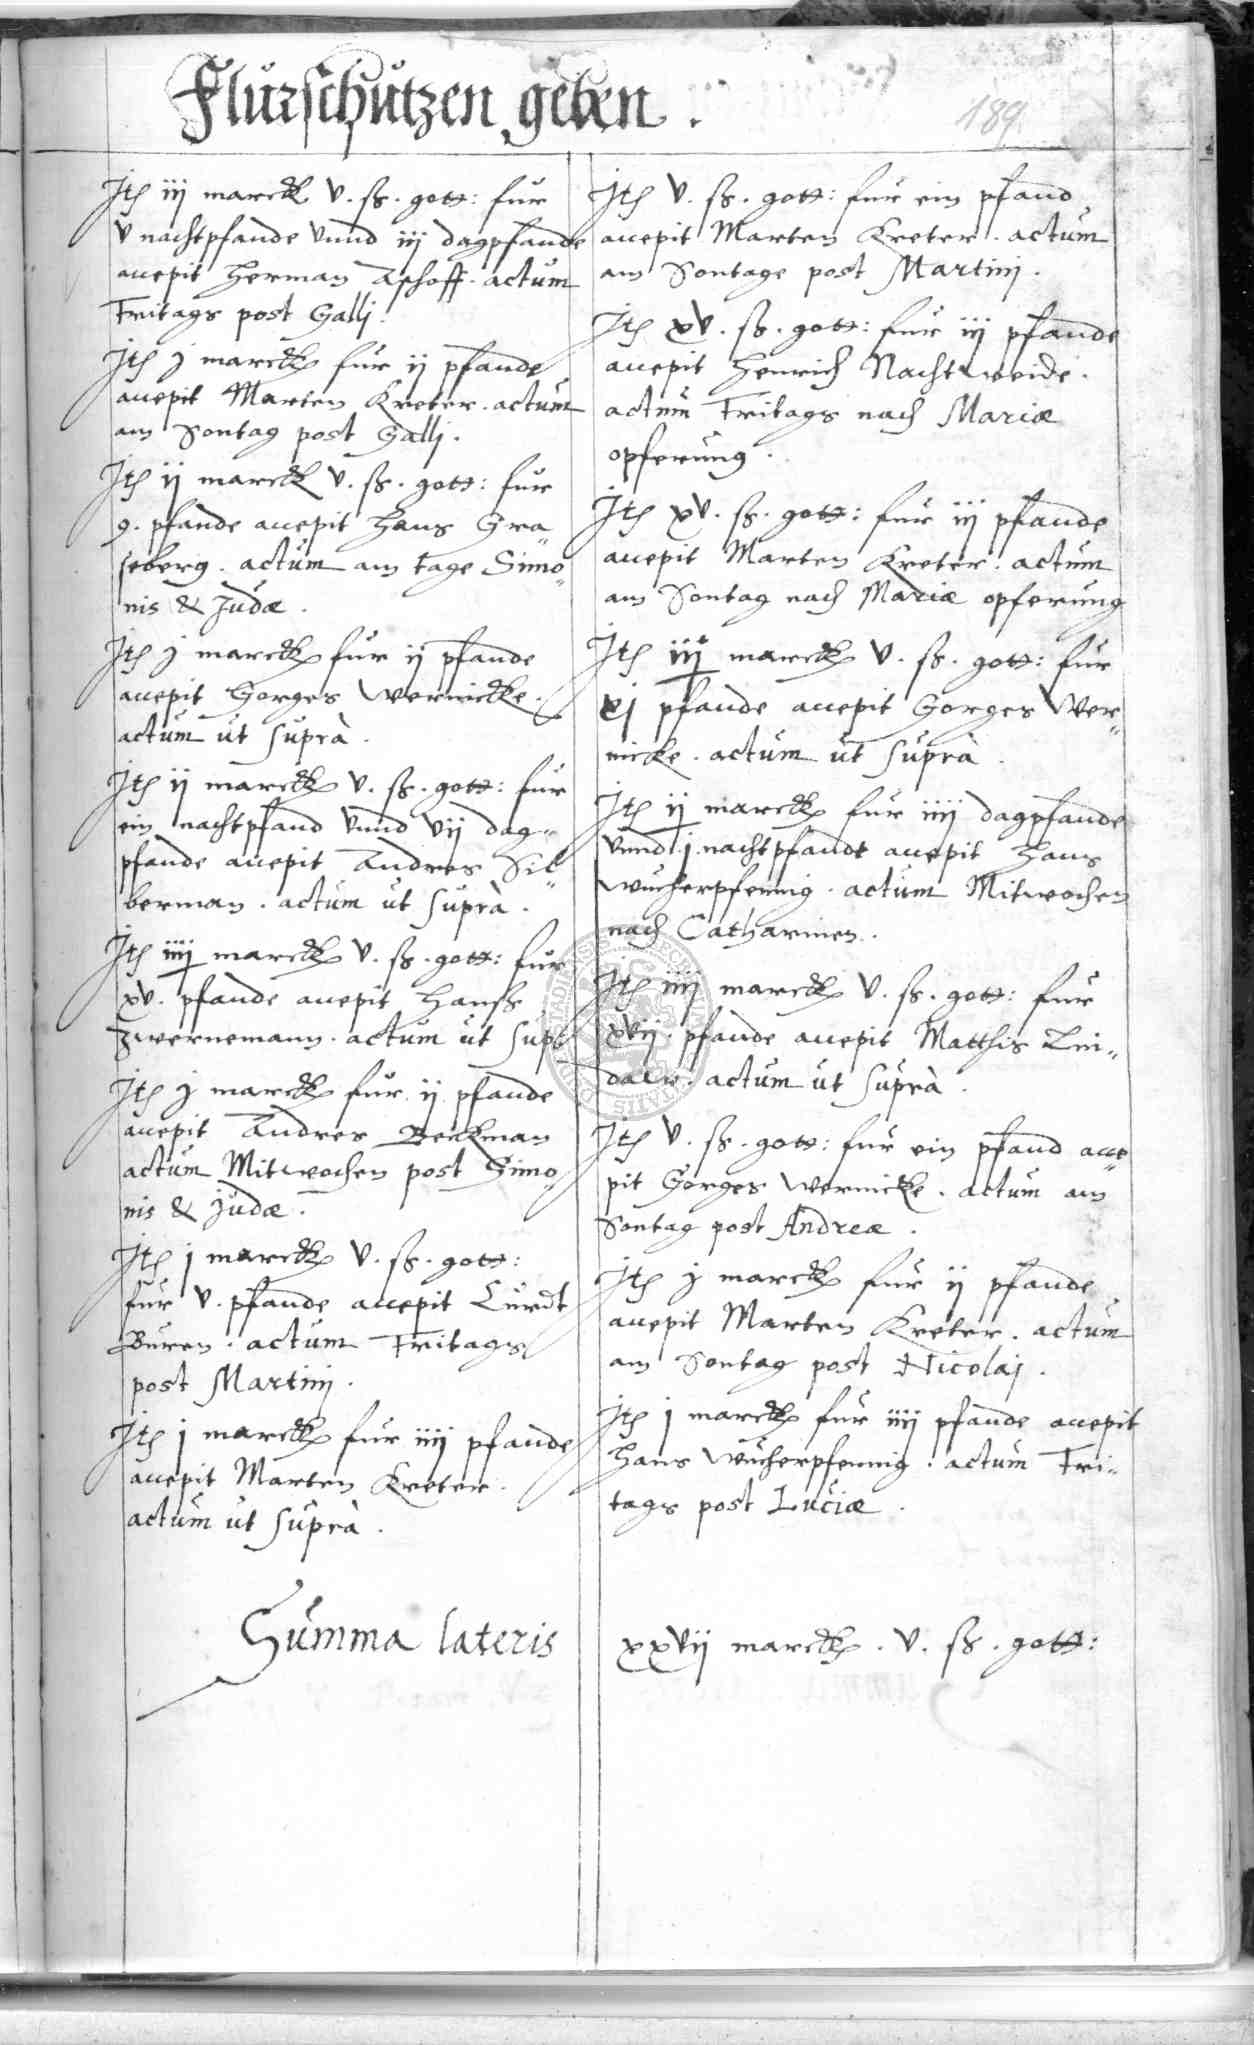 Flurschutzen geben.
189
Jtem iij marck v. ß. gott: fur
v nachtpfande vnnd iij dagpfande
accepit Herman Aschoff. actum
Fritags post Galli.
Jtem j marck fur ij pfande
accepit Marten Kreter. actum
am Sontag post Galli.
Jtem ij marck v. ß. gott: fur
9. pfande accepit Hans Gra„
seberg. actum am tage Simo„
nis & Judæ.
Jtem j marck fur ij pfande
accepit Gorges Wernicke.
actum ut suprà.
Jtem ij marck v. ß. gott: fur
ein nachtpfand vnnd vij dag„
pfande accepit Andres Sil„
berman. actum ut suprà.
Jtem iiij marck v. ß. gott: fur
xv. pfande accepit Hanß
Zwernemann. actum ut sup:
Jtem j marck fur ij pfande
accepit Andres Beckman
actum Mitwochen post Simo„
nis & Judæ.
Jtem j marck v. ß. gott:
fur v. pfande accepit Curdt
Buren. actum Fritags
post Martinj.
Jtem j marck fur iiij pfande
accepit Marten Kreter.
actum ut suprà.
Jtem v. ß. gott: fur ein pfand
accepit Marten Kreter. actum
am Sontage post Martinj.
Jtem xv. ß. gott: fur iij pfande
accepit Henrich Nachtweide.
actum Fritags nach Mariæ
opferung.
Jtem xv. ß. gott: fur iij pfande
accepit Marten Kreter. actum
am Sontag nach Mariæ opferung
Jtem iij marck v. ß. gott: fur
xj pfande accepit Gorges Wer„
nicke. actum ut suprà.
Jtem ij marck fur iiij dagpfande
vnnd j. nachtpfandt accepit Hans
Wucherpfennig. actum Mitwochen
nach Catharinen.
Jtem iiij marck v. ß. gott: fur
xvij. pfande accepit Matthis Lin„
daw. actum ut suprà.
Jtem v. ß. gott: fur ein pfand acce„
pit Gorges Wernicke. actum am
Sontag post Andreæ.
Jtem j marck fur ij pfande
accepit Marten Kreter. actum
am Sontag post Nicolaj.
Jtem j marck fur iiij pfande accepit
Hans Wucherpfennig. actum Fri„
tags post Luciæ.
Summa lateris xxvij marck. v. ß. gott: